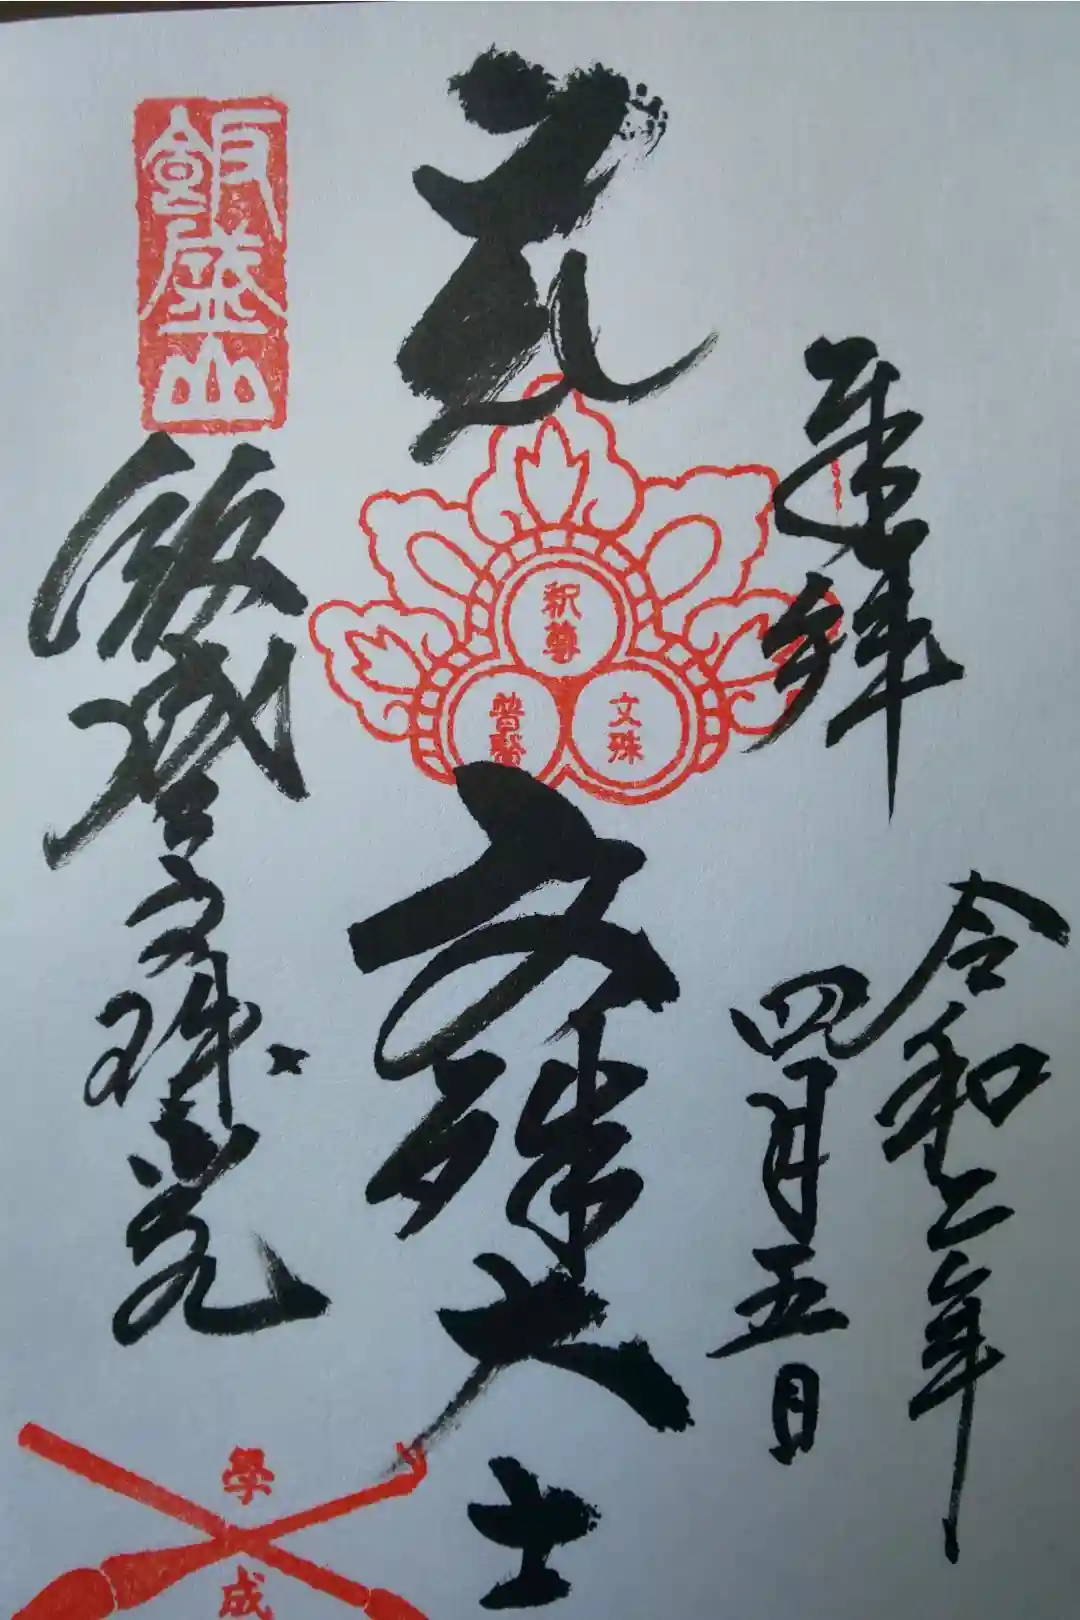 奉拝
令和二年
四月五日
文殊大士
釈尊
文殊
普賢
飯盛山
飯盛山文殊堂
學
成